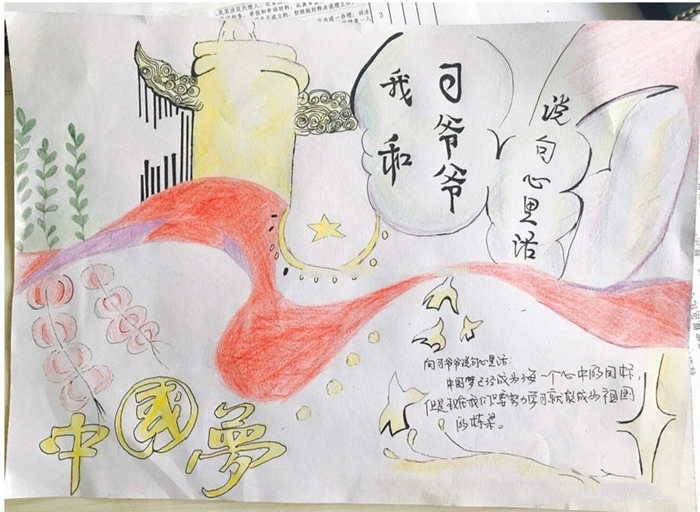 我和
习爷爷
说句心里话
向习爷爷说句心里话:
中国梦已经成为每一个心中的目标,
但是现在我们只要努力学习就能成为祖国
的栋梁。
中國夢
3